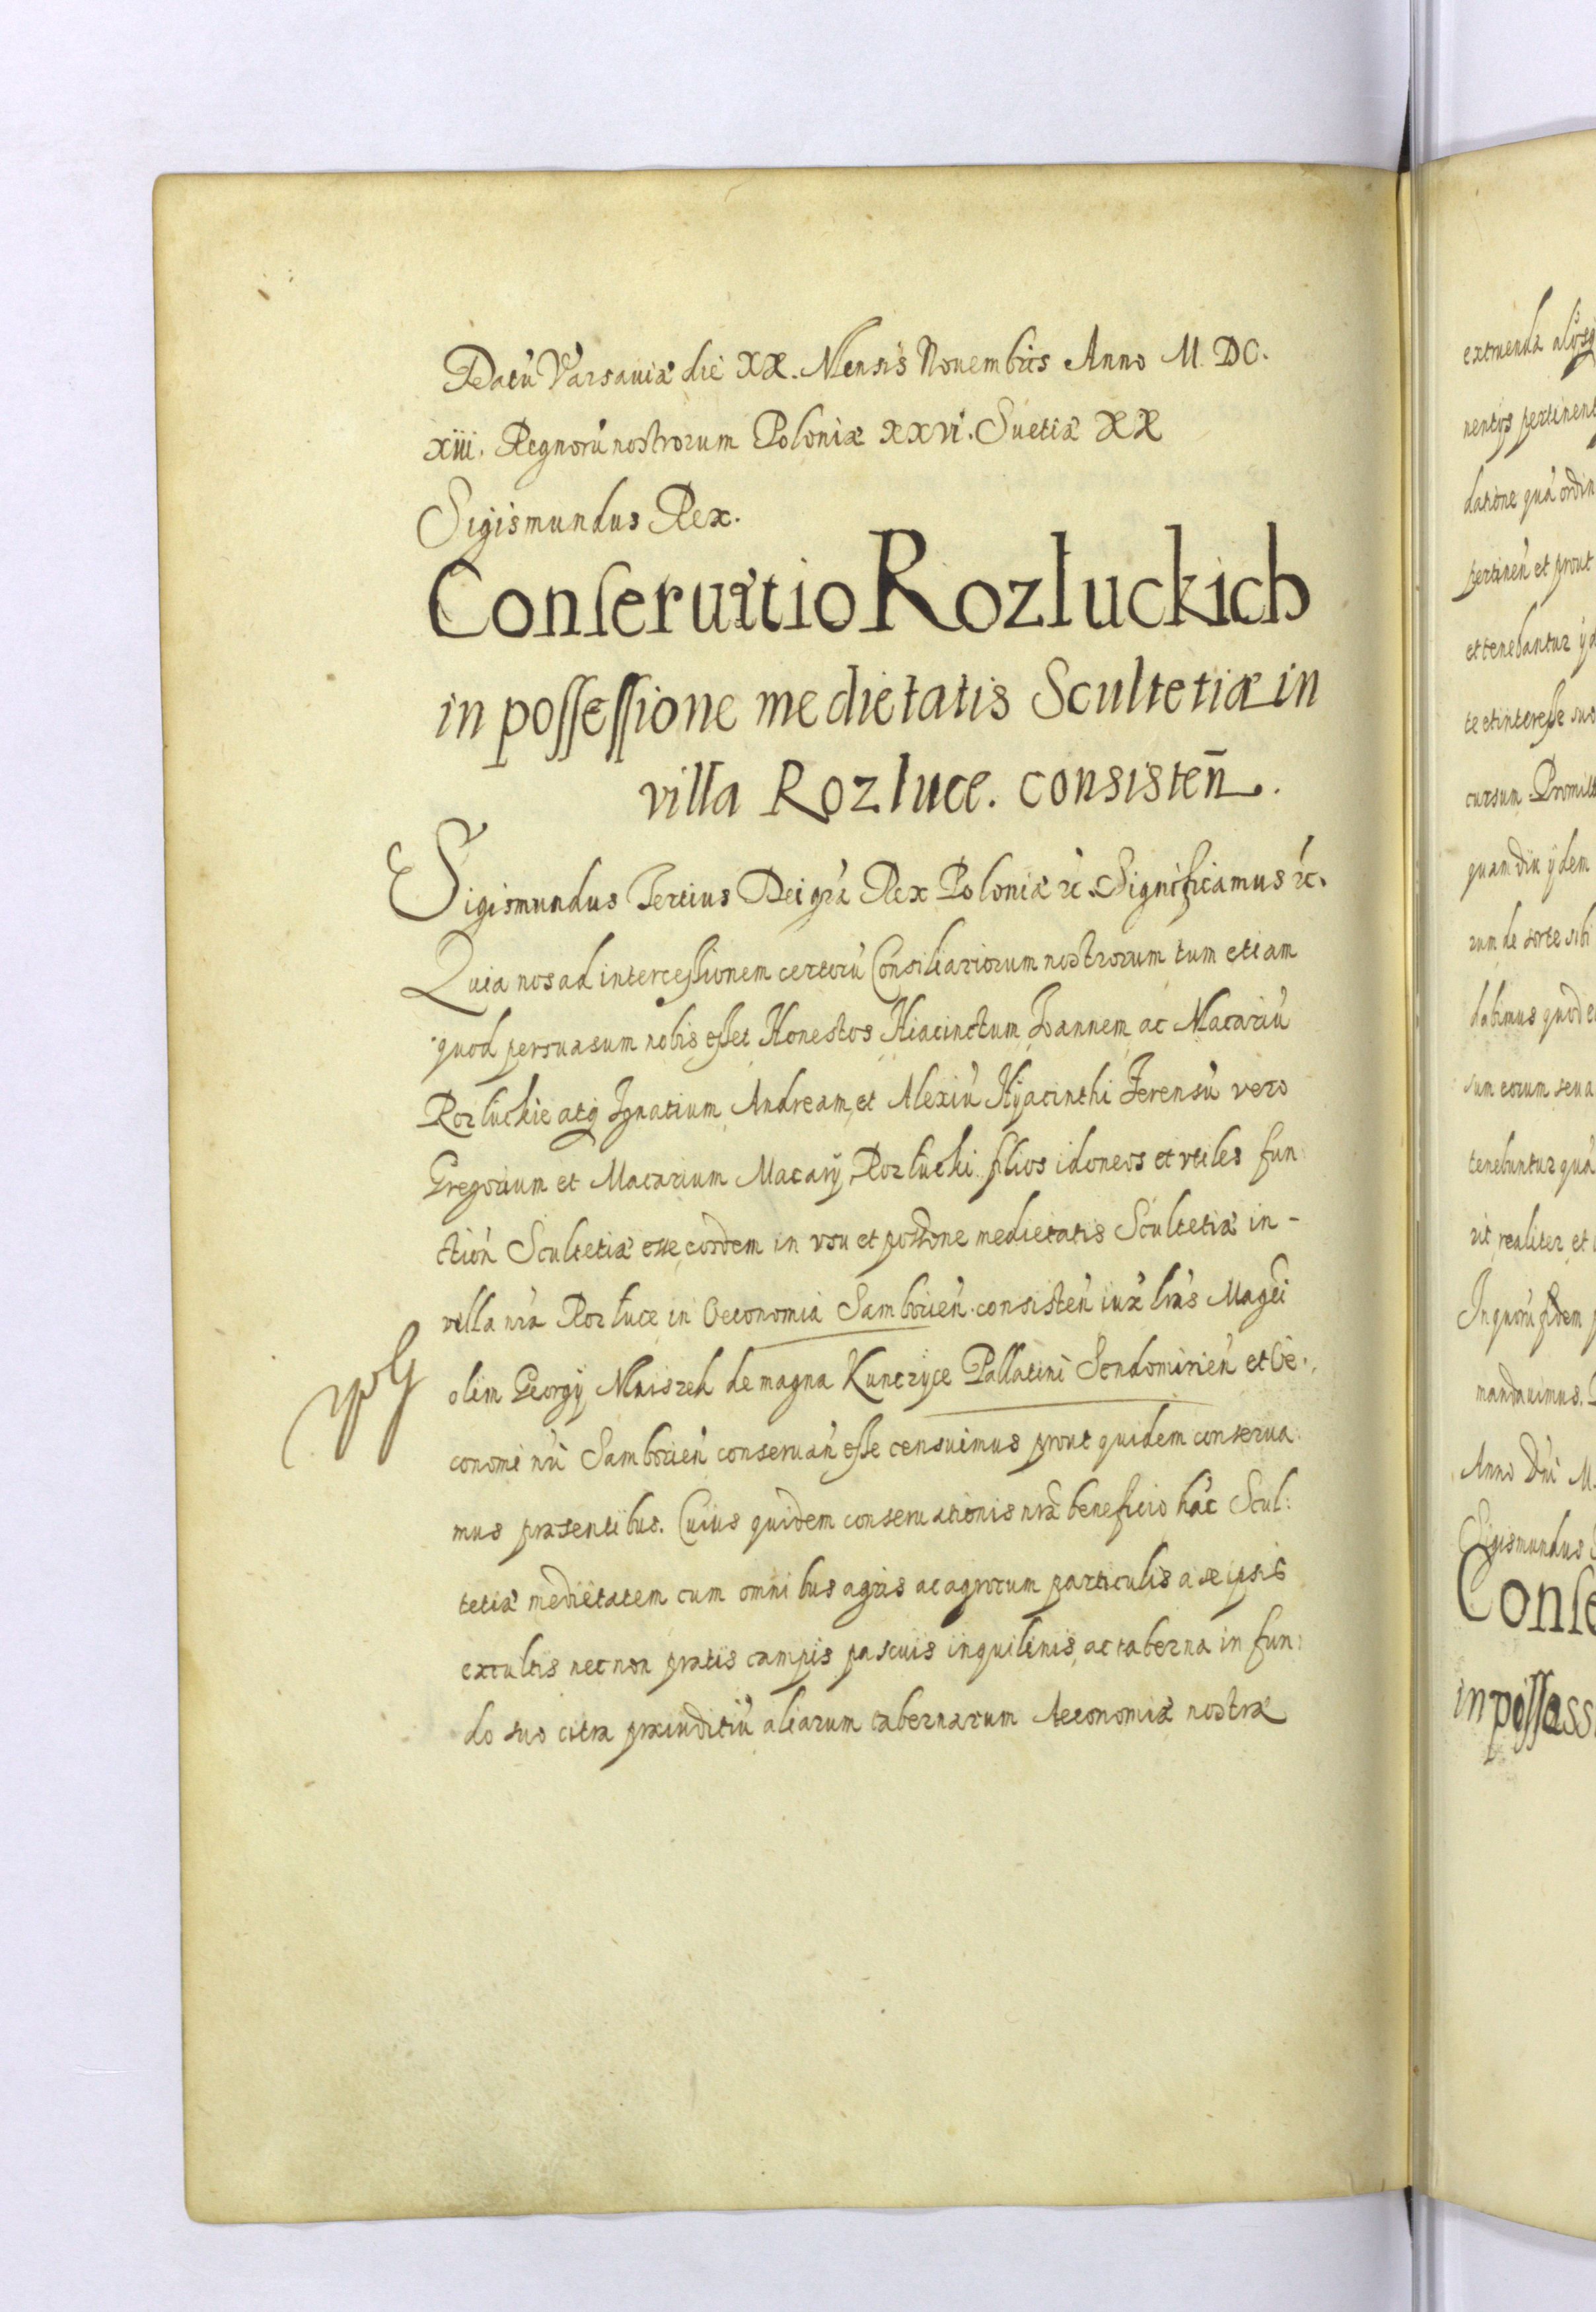 Datũ Varsaviæ die XX. Mensis Novembris Anno M. DC.
xiii. Regnorũ nostrorum Poloniæ xxvi. Suetiæ XX
Sigismundus Rex.
Conservatio Rozluckich
in possessione medietatis Scultetiæ in
villa Rozluce. consisteñ.
Sigismundus Tertius Dei grã Rex Poloniæ &c. Significamus &c.
Quia nos ad intercessionem certorũ Consiliariorum nostrorum tum etiam
quod persuasum nobis esset Honestos Hiacinctum Joannem ac Macariũ
Rozluckie atq Ignatium Andream et Alexiũ Hyacinthi Ferensũ vero
Gregorium et Macarium Macarÿ Rozlucki filios idoneos et vtiles fun
ctioñ Scultetiæ esse eosdem in vsu et possone medietatis Scultetiæ in-
villa nrã Rozluce in Oeconomia Samborieñ consisteñ iux lrãs Magci
olim Georgÿ Mniszch de magna Kunczyce Pallatini Sendomirieñ et Oe.
conomi nri Samborieñ conservañ esse censuimus prout quidem conserva:
mus præsentibus. Cuius quidem conservationis nræ beneficio hãc Scul:
tetiæ medietatem cum omnibus agris ac agrorum particulis a se ipsis
excultis nec non pratis campis pascuis inquilinis, ac taberna in fun:
do suo citra præiuditiũ aliarum tabernarum Aeconomiæ nostræ
extruenda
pertinent
datione quã ordin
pertineñ et prout
et tenebantur ÿd
te et interesse suo
cursum Promitt
quamdiu ÿdem
rum de sorte sibi
dabimus quod e
sum eorum seu a
tenebuntur quã
rit realiter et
In quorũ fidem p
mandavimus.
Anno Dni M.
Sigismundus
Conse
in possess